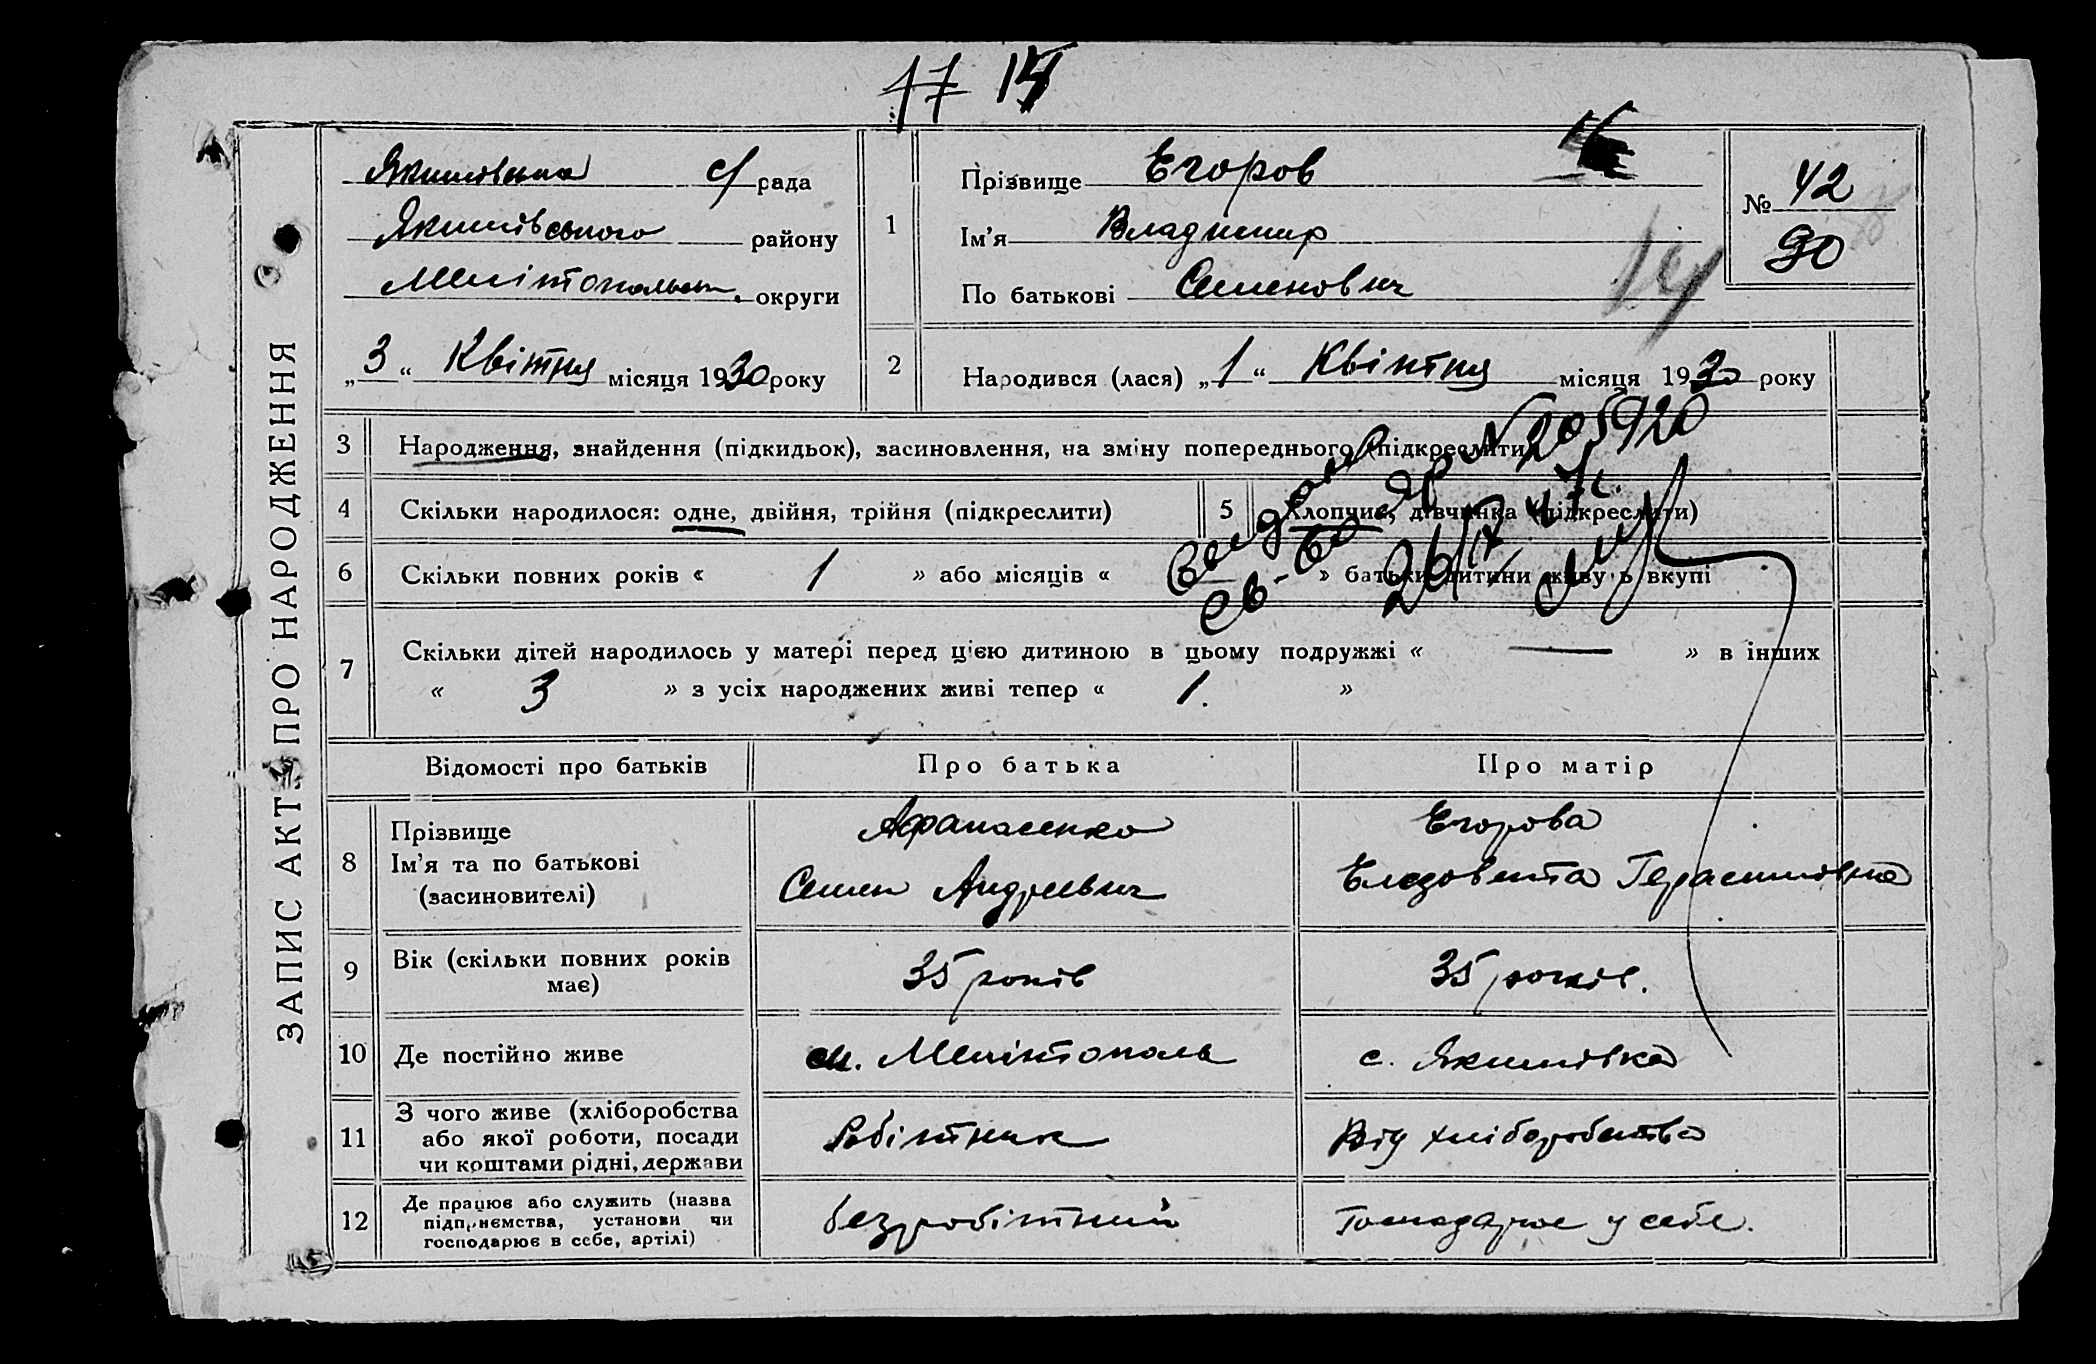 17 14
ЗАПИС АКТ. ПРО НАРОДЖЕННЯ
Якимівська с/рада
Якимівського району
Мелітопольськ. округи
„3“ Квітня місяця 1930 року
1
Прізвище Егоров
Ім'я Владимир
По батькові Семенович
14
№ 42
90
2
Народився (лася) „1“ Квінтня місяця 1930 року
3 Народження, знайдення (підкидьок), засиновлення, на зміну попереднього (підкреслити)
4 Скільки народилося: одне, двійня, трійня (підкреслити)
5 Хлопчик, дівчинка (підкреслити)
6 Скільки повних років « 1 » або місяців « » батьки дитини живуть вкупі
Выдано
св-во № 205920
26/IX 47г.
7 Скільки дітей народилось у матері перед цією дитиною в цьому подружжі « — » в інших
« 3 » з усіх народжених живі тепер « 1. »
Відомості про батьків Про батька Про матір
8 Прізвище
Ім'я та по батькові
(засиновителі)
Афанасенко
Семен Андреевич
Егорова
Елезовета Герасимовна
9 Вік (скільки повних років
має)
35 років
35 років.
10 Де постійно живе
м. Мелінтополь
с. Якимівка
11 З чого живе (хліборобства
або якої роботи, посади
чи коштами рідні, держави
Робінтник
Від хліборобства
12 Де працює або служить (назва
підприємства, установи чи
господарює в себе, артілі)
безробітний
Господарює у себе.